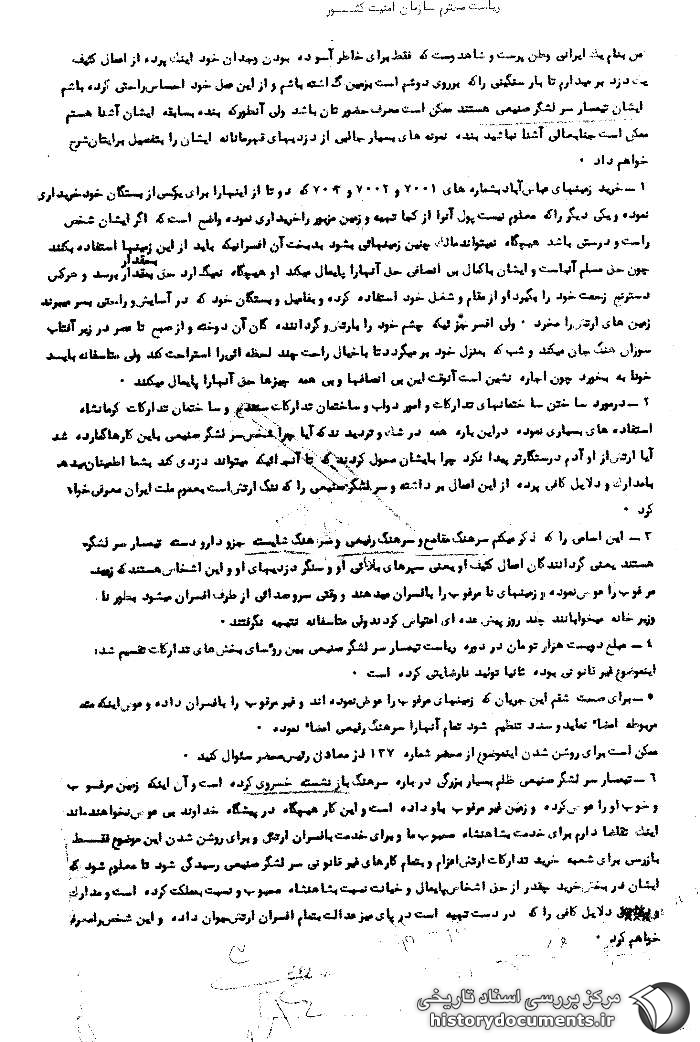 ریاست محترم سازمان امنیت کشور
من بنام یک ایرانی وطن پرست و شاهدوست که فقط برای خاطر آسوده بودن وجدان خود اینک پرده از اعمال کثیف
یک دزد بر میدارم تا بار سنگینی راکه بروی دوشم است بزمین گذاشته باشم و از این عمل خود احساس راحتی کرده باشم
ایشان تیمسار سر لشگر صنیعی هستند ممکن است معرف حضورتان باشد ولی آنطورکه بنده بسابقه ایشان آشنا هستم
ممکن است جنابعالی آشنا نباشید بنده نمونه های بسیار جالبی از دزدیهای قهرمانانه ایشان را بتفصیل برایتان شرح
خواهم داد .
۱ ــ خرید زمینهای عباس آباد بشماره های ۷۰۰۱ و ۷۰۰۲ و ۷۰۰۳ که دو تا از اینهارا برای یکی از بستگان خود خریداری
نموده و یکی دیگر راکه معلوم نیست پول آنرا از کجا تهیه و زمین مزبور را خریداری نموده واضح است که اگر ایشان شخص
راست و درستی باشد هیچگاه نمیتواند مالک چنین زمینهائی بشود بدبخت آن افسرانیکه باید از این زمینها استفاده بکنند
چون حق مسلم آنهاست و ایشان باکمال بی انصافی حق آنهارا پایمال میکند او هیچگاه نمیگذارد حق بحقدار برسد و هرکس
دسترنج زحمت خود را بگیرد او از مقام و شغل خود استفاده کرده و بفامیل و بستگان خود که در آسایش و راحتی بسر میبرند
زمین های ارتش را میخرد . ولی افسر جزئیکه چشم خود را بارتش و گرداننده گان آن دوخته و از صبح تا عصر در زیر آفتاب
سوزان هنگ جان میکند و شب که بمنزل خود بر میگردد تا باخیال راحت چند لحظه ائی را استراحت کند ولی متاسفانه بایسد
خونابه بخورد چون اجاره نشین است آنوقت این بی انصافها و بی همه چیزها حق آنهارا پایمال میکنند .
۲ ــ درمورد ساختن ساختمانهای تدارکات و امور دواب و ساختمان تدارکات سنندج و ساختمان تدارکات کرمانشاه
استفاده های بسیاری نموده در این باره همه در شک و تردیدند که آیا چرا شخص سر لشگر صنیعی باین کارها گمارده شد
آیا ارتش از او آدم درستکارتر پیدا نکرد چرا بایشان محول کردند که تا آنجائیکه میتواند دزدی کند بشما اطمینان میدهم
بامدارک و دلایل کافی پرده از این اعمال برداشته و سر لشگر صنیعی را که ننگ ارتش است بعموم ملت ایران معرفی خواهم
کرد .
۳ ــ این اسامی را که ذکر میکنم سرهنگ مقامع و سرهنگ رفیعی و سرهنگ شایسته جزو دار و دسته تیمسار سر لشگر
هستند یعنی گردانندگان اعمال کثیف او یعنی سپرهای بلائی او و سنگر دزدیهای او و این اشخاص هستند که زمینهای
مرغوب را عوض نموده و زمینهای نامرغوب را بافسران میدهند و وقتی سروصدائی از طرف افسران میشود بطور نا
وزیر خانه میخوابانند چند روز پیش عده ای اعتراض کردند ولی متاسفانه نتیجه نگرفتند .
۴ ــ مبلغ دویست هزار تومان در دوره ریاست تیمسار سر لشگر صنیعی بین روسای بخش های تدارکات تقسیم شد :
اینموضوع غیر قانونی بوده ثانیا تولید نارضایتی کرده است .
۵ ــ برای صحت سقم این جریان که زمینهای مرغوب را عوض نموده اند و غیر مرغوب را بافسران داده و عوض اینکه
مربوطه امضاء نماید و سند تنظیم شود تمام آنهارا سرهنگ رفیعی امضاء نموده .
ممکن است برای روشن شدن اینموضوع از محضر شماره ۱۳۷ رئیس محضر سئوال کنید .
۶ ــ تیمسار سر لشگر صنیعی ظلم بسیار بزرگی در باره سرهنگ باز نشسته خسروی کرده است و آن اینکه زمین مرغوب
و خوب او را عوض کرده و زمین غیر مرغوب باو داده است و این کار هیچگاه در پیشگاه خداوند بی عوض نخواهد ماند
اینک تقاضا دارم برای خدمت بشاهنشاه محبوب ما و برای خدمت بافسران ارتش و برای روشن شدن این موضوع فقسط
بازرسی برای شعبه خرید تدارکات ارتش اعزام و بتمام کارهای غیر قانونی سر لشگر صنیعی رسیدگی شود تا معلوم شود که
ایشان در بخش خرید چقدر از حق اشخاص پایمال و خیانت نسبت بشاهنشاه محبوب و نسبت بمملکت کرده است و مدارک
دلایل کافی را که در دست تهیه است در پای میز عدالت بتمام افسران ارتش جوان داده و این شخص را معرفی
خواهم کرد .
مرکز بررسی اسناد تاریخی
historydocuments.ir